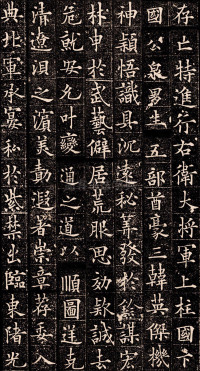 存亡特進行右衛大將軍上柱國卞
國公泉男生五部酋豪三韓英傑機
神穎悟識具沉遠秘筭發於鈐謀宏
材申於武藝僻居荒服思効款誠去
危就安允叶變通之道以順圖逆克
清遼浿之濱美勣遐著崇章荐委入
典北軍承宴私於紫禁出臨東陼光